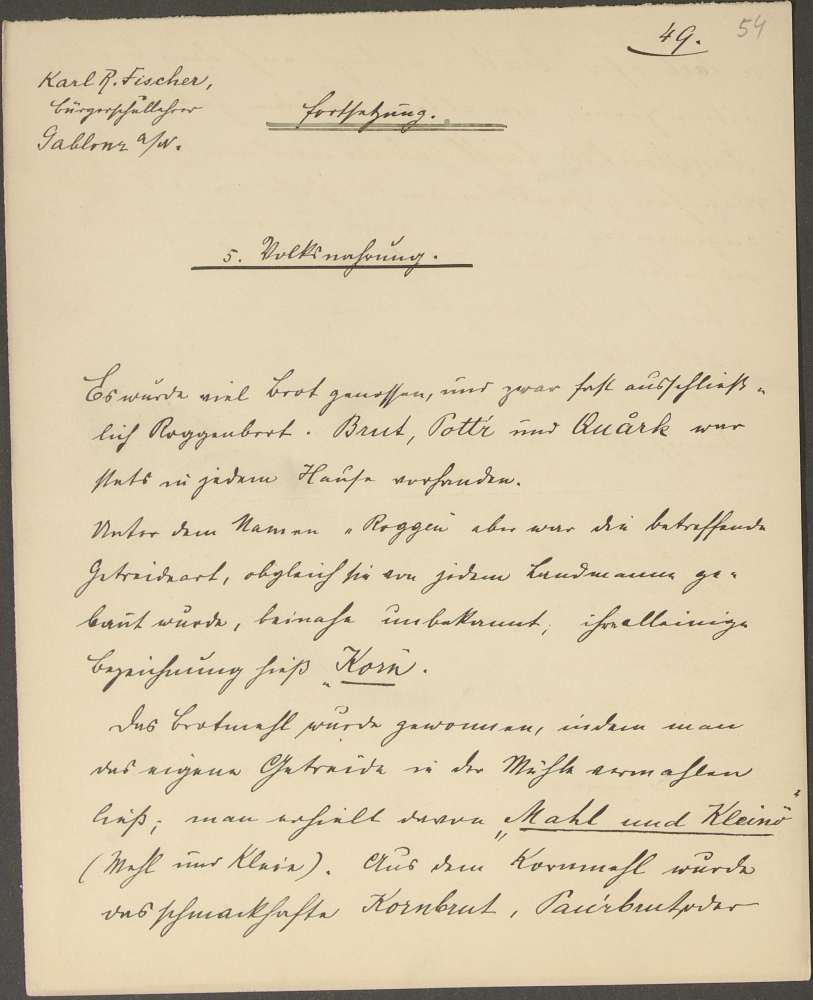 49.
54
Karl R. Fischer,
Bürgerschullehrer
Gablonz a/N.
Fortsetzung.
5. Volksnahrung.
Es wurde viel Brot genossen, und zwar fast ausschließ-
lich Roggenbrot. Brut, Pottr und Quårk war
stets in jedem Hause vorhanden.
Unter dem Namen „Roggen“ aber war die betreffende
Getreideart, obgleich sie von jedem Landmanne ge-
baut wurde, beinahe unbekannt; ihre alleinige
Bezeichnung hieß „Korn“.
Das Brotmehl wurde gewonnen, indem man
das eigene Getreide in der Mühle vermahlen
ließ; man erhielt davon „Mahl und Kleinö“
(Mehl und Kleie). Aus dem Kornmehl wurde
das schmackhafte Kornbrut, Pau'rbrut oder